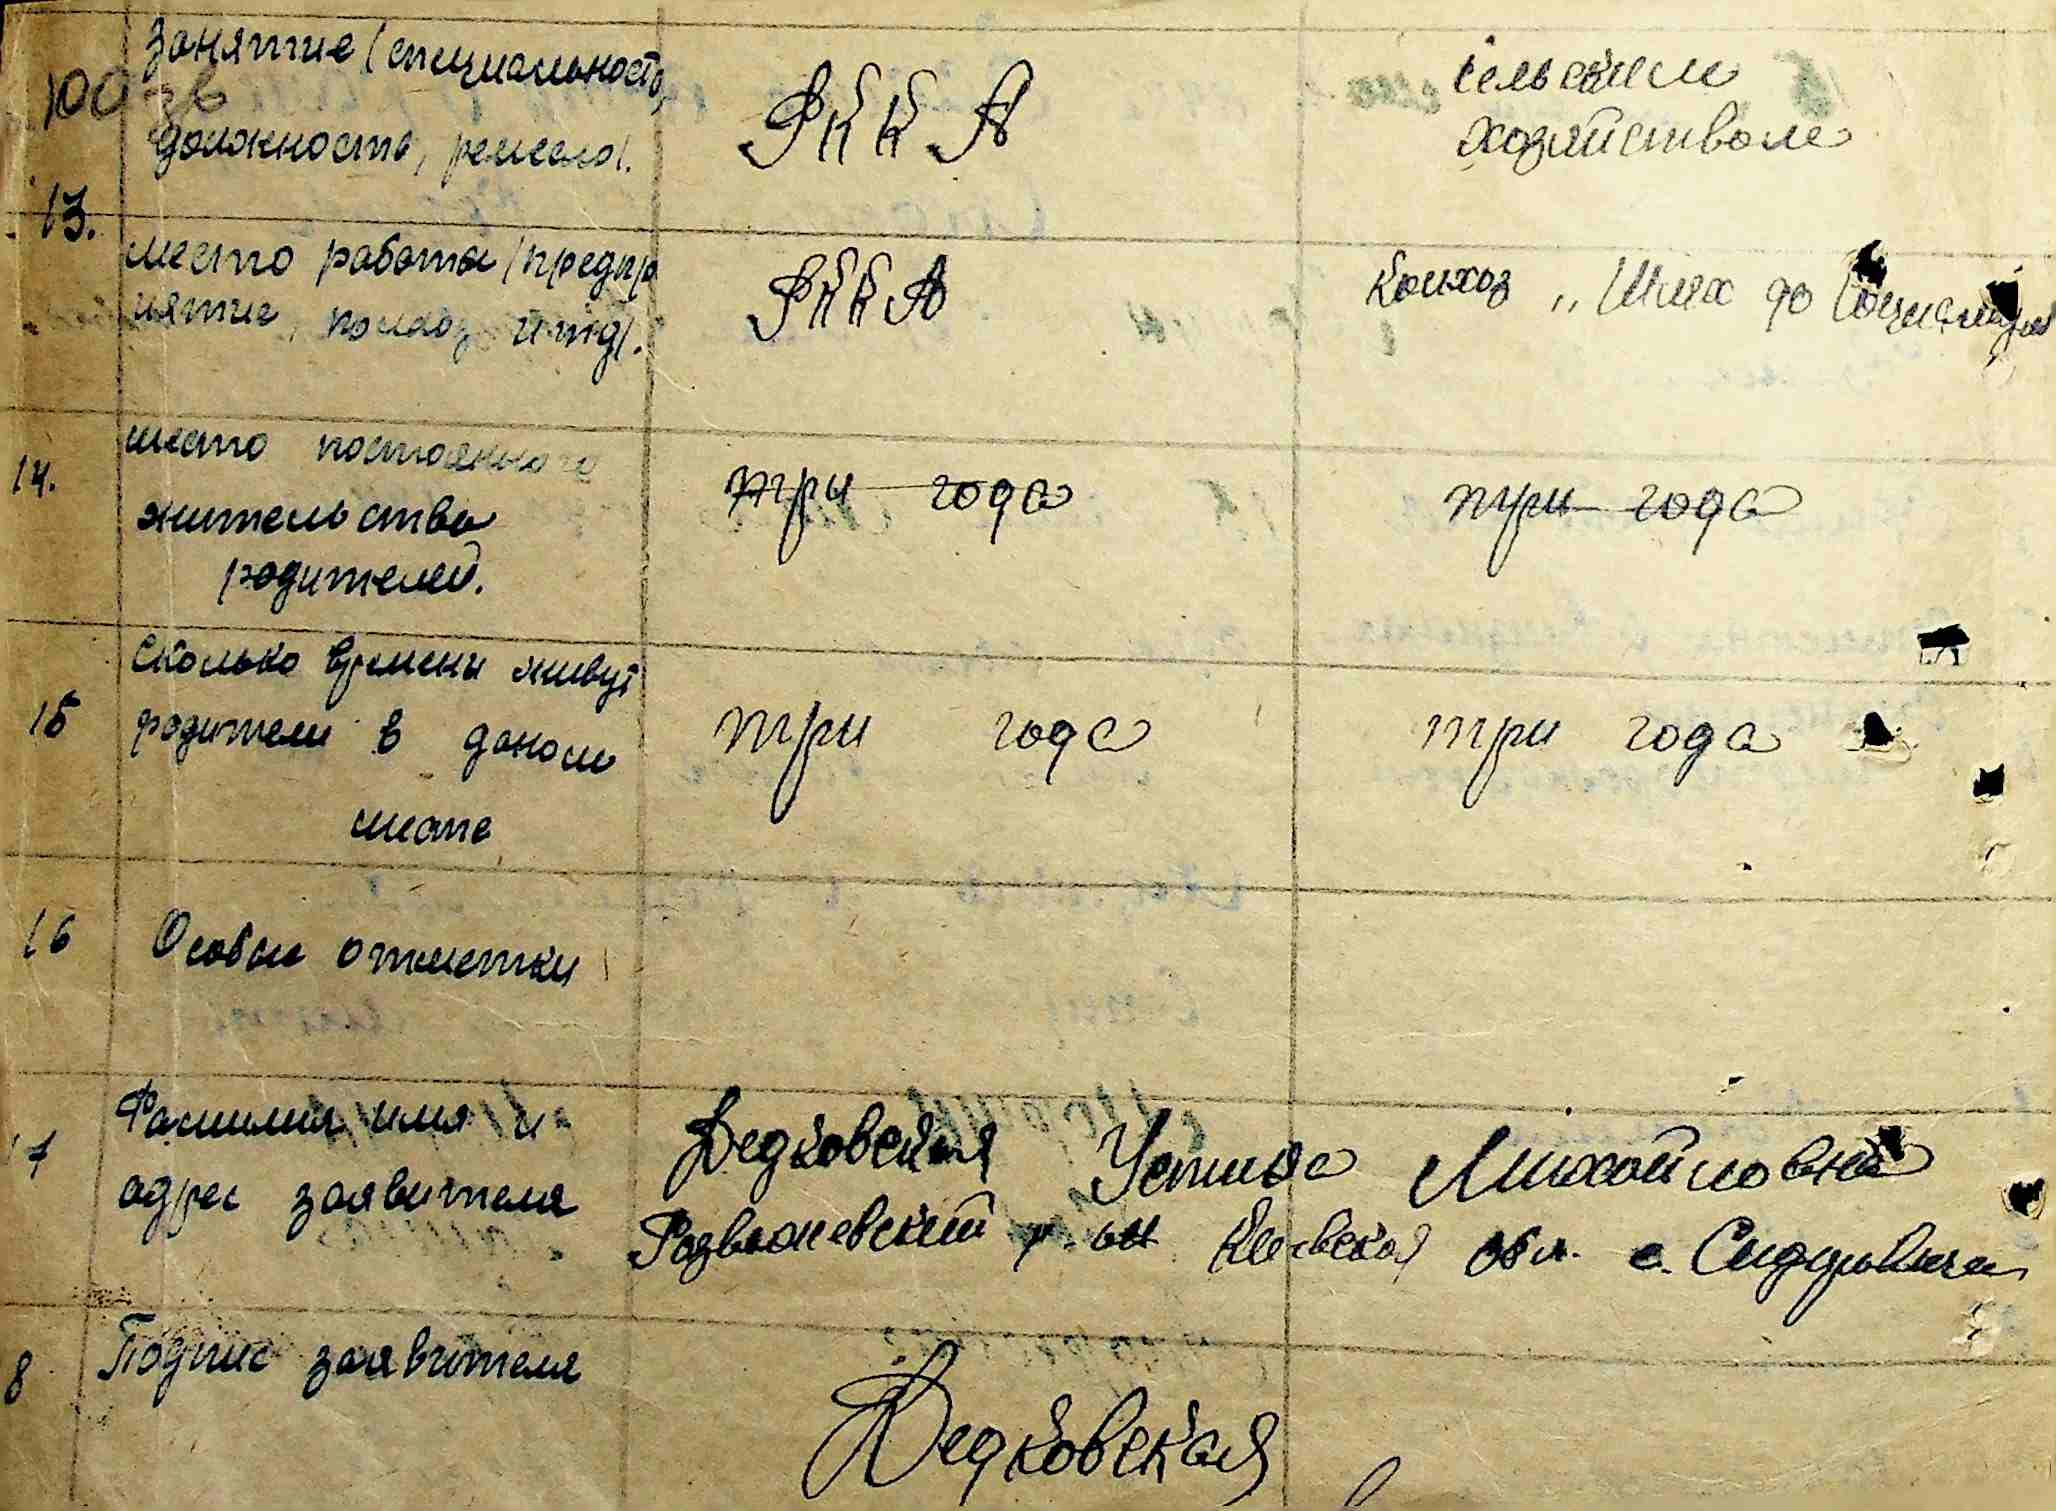 Занятие (специальность,
должность, ремесло).
РККА
сельским
хозяйством
100 зв
13.
место работы (предпр
иятие, колхоз и т.д).
РККА
Колхоз „Шлях до Социализм
14.
место постоянного
жительства
родителей.
три года
три года
15
Сколько времени живут
родители в даном
месте
три года
три года
16
Особые отметки
17
Фамилия имя и
адрес заявителя
Ведковская Устина Михайловна
Розважевский р-он Киевская обл. с.
8
Подпис заявителя
Ведковская